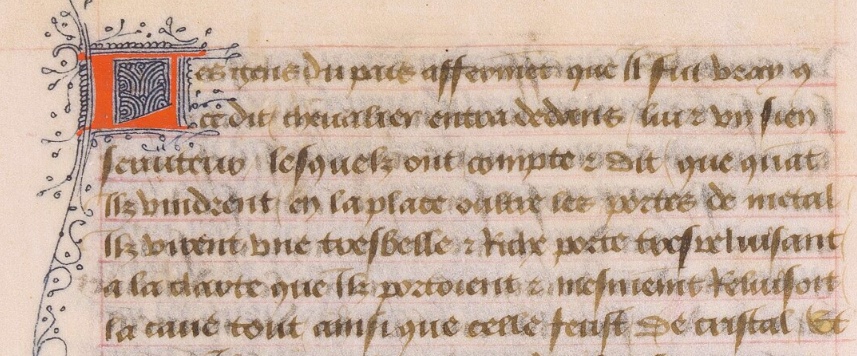 Les gens du pais afferment que il fut vray q
ce dit chevalier entra dedans lui & vn sien
seruiteur lesquelz ont compte & dit que quāt
ilz vindrent en la place oultre les portes de metal
ilz virent vne tresbelle & Riche porte tresreluisant
a la clarte que ilz portoient & mesmemt Reluisoit
la caue tout ainsi que celle feust de cristal Et